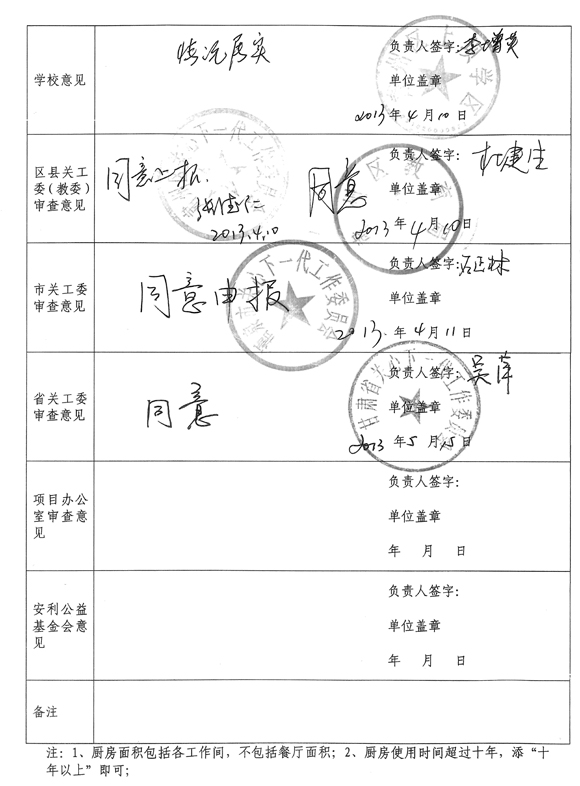 学校意见
情况属实
负责人签字:李增英
单位盖章
2013年4月10日
区县关工
委(教委)
审查意见
同意上报.
2013.4.10
同意
负责人签字:杜建生
单位盖章
2013年4月10日
市关工委
审查意见
同意申报
下一代工作委员会
负责人签字:
单位盖章
2013.年4月11日
省关工委
审查意见
同意
甘肃省关心下一代工作委员会
负责人签字:吴萍
单位盖章
2013年5月15日
项目办公
室审查意
见
负责人签字:
单位盖章
年 月 日
安利公益
基金会意
见
负责人签字:
单位盖章
年 月 日
备注
注:1、厨房面积包括各工作间,不包括餐厅面积;2、厨房使用时间超过十年,添“十
年以上”即可;